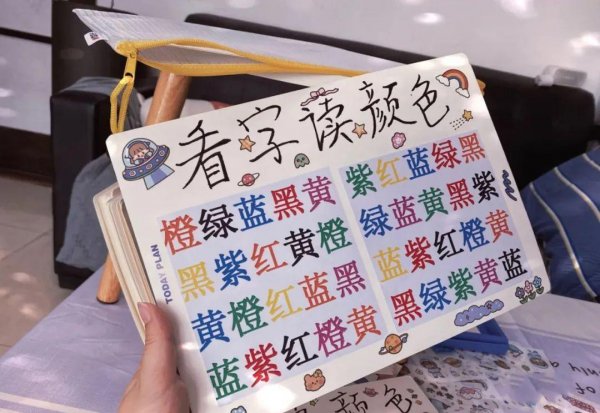 看字读颜色
橙绿蓝黑黄
黑紫红黄橙
黄橙红蓝黑
蓝紫红橙黄
紫红蓝绿黑
绿蓝黄黑紫
蓝紫红橙黄
黑绿紫黄蓝
TODAY PLAN
颜色